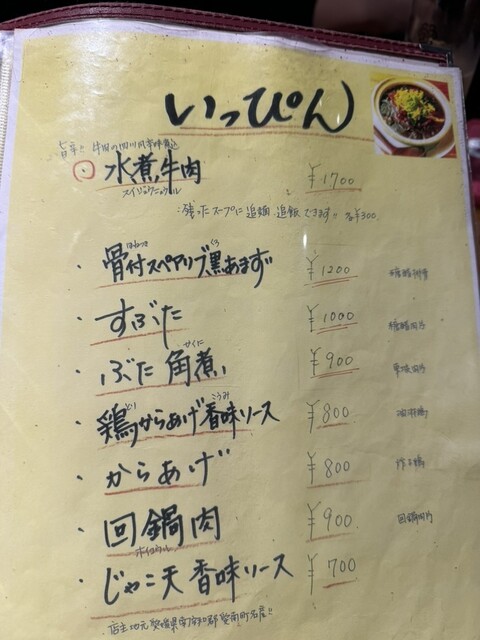 いっぴん
旨辛!! 牛肉の四川風辛味煮込
水煮牛肉 ¥1,700
スイジュウニュウル
残ったスープに追麺、追飯できます!! 各¥300
骨付スペアリブ黒あまず ¥1200 糖醋排骨
ほねつき くろ
すぶた ¥1000 糖醋肉
ぶた角煮 ¥900
かくに
鶏からあげ香味ソース ¥800 油淋鶏
とり こうみ
からあげ ¥800 炸子鶏
回鍋肉 ¥900 回鍋肉片
ホイコウロウ
じゃこ天香味ソース ¥700
店主地元愛媛県南宇和郡愛南町名産!!